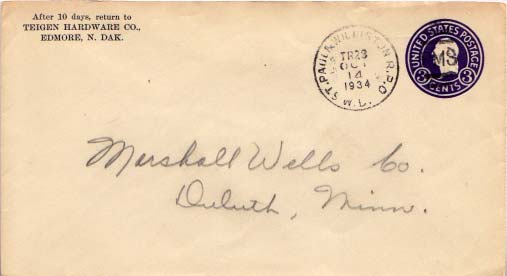 After 10 days, return to
TEIGEN HARDWARE CO.,
EDMORE, N. DAK.
ST. PAUL & WILLISTON R.P.O.
TR28
OCT
14
1934
W.D.
UNITED STATES POSTAGE
MS
3 CENTS 3
Marshall Wells Co.
Duluth, Minn.